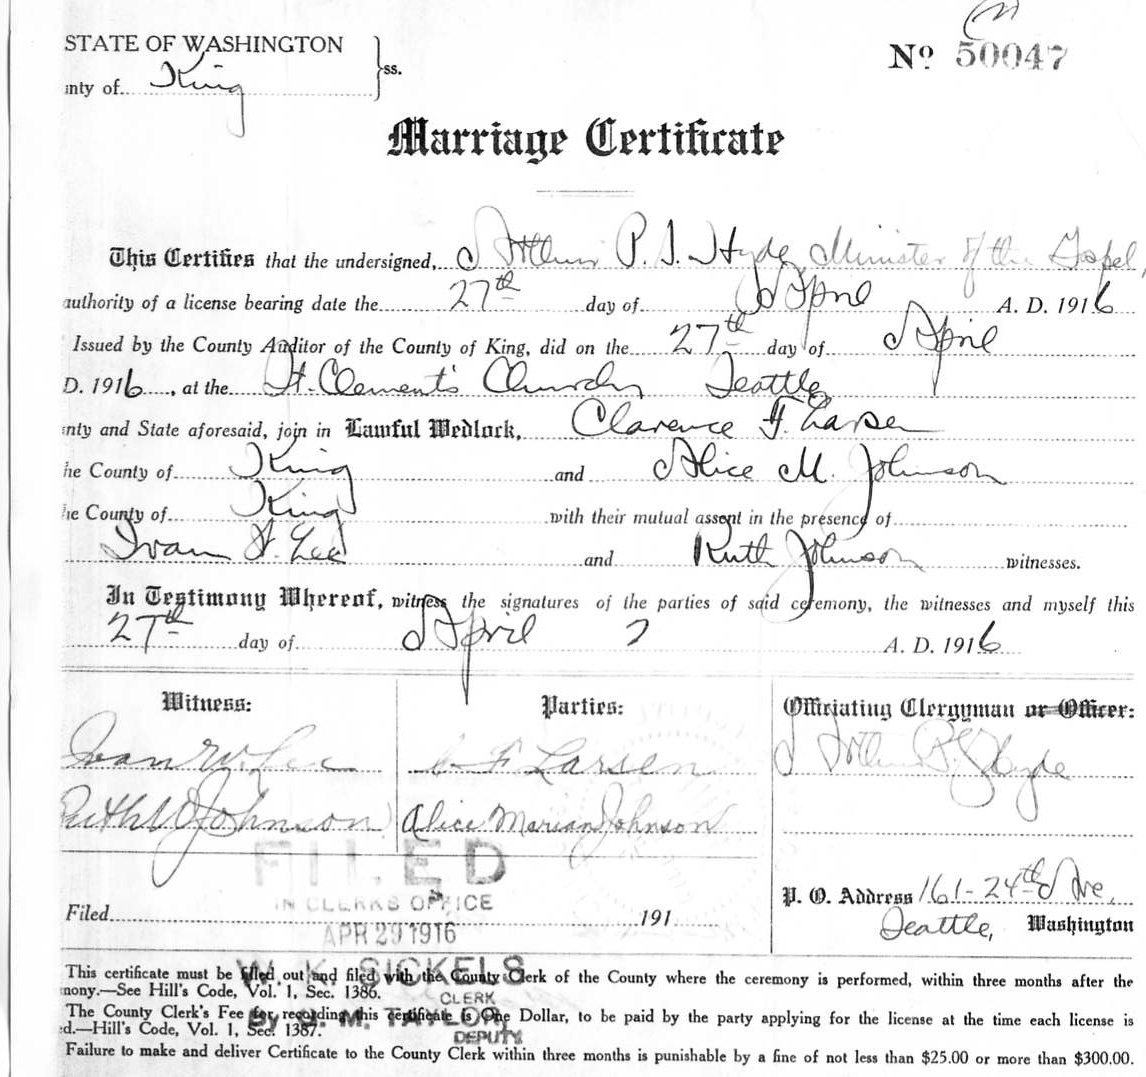 STATE OF WASHINGTON
nty of King ss.
No 50047
Marriage Certificate
This Certifies that the undersigned, Arthur P. S. Hyde, Minister of the Gospel,
authority of a license bearing date the 27th day of April A. D. 1916
Issued by the County Auditor of the County of King, did on the 27th day of April
D. 1916, at the St. Clement's Church, Seattle,
nty and State aforesaid, join in Lawful Wedlock, Clarence F. Larsen
he County of King and Alice M. Johnson
he County of King with their mutual assent in the presence of
Ivan W. Lee and Ruth Johnson witnesses.
In Testimony Whereof, witness the signatures of the parties of said ceremony, the witnesses and myself this
27th day of April A. D. 1916
Witness: Parties: Officiating Clergyman or Officer:
Ivan W. Lee C F Larsen Arthur P S Hyde
Ruth Johnson Alice Marian Johnson
FILED
IN CLERKS OFFICE
P. O. Address 161-24th Ave,
Filed 191
APR 29 1916
Seattle, Washington
W. K. SICKELS
CLERK
By S. M. TAYLOR
DEPUTY
This certificate must be filled out and filed with the County Clerk of the County where the ceremony is performed, within three months after the
mony.—See Hill's Code, Vol. 1, Sec. 1386.
The County Clerk's Fee for recording this certificate is One Dollar, to be paid by the party applying for the license at the time each license is
d.—Hill's Code, Vol. 1, Sec. 1387.
Failure to make and deliver Certificate to the County Clerk within three months is punishable by a fine of not less than $25.00 or more than $300.00.